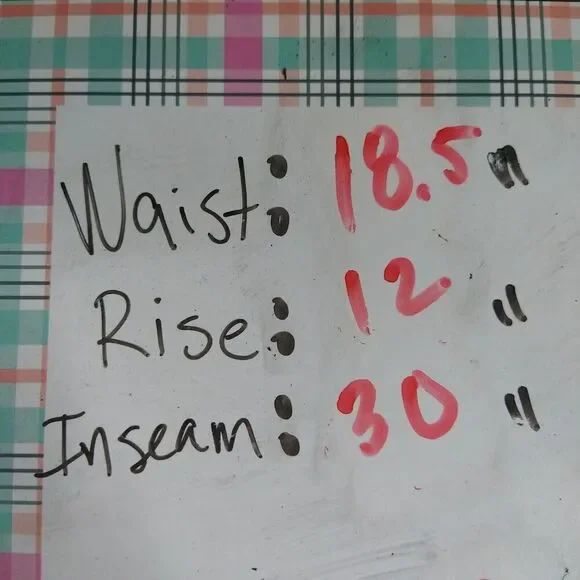 Waist: 18.5"
Rise: 12"
Inseam: 30"